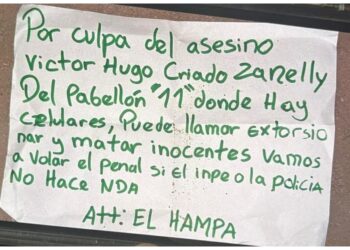 Por culpa del asesino
Victor Hugo Criado Zanelly
Del Pabellón "11" donde Hay
celulares, Puede llamar Extorsio
nar y matar inocentes Vamos
a Volar el penal si El inpe o la policia
No Hace NDA
Att: EL HAMPA